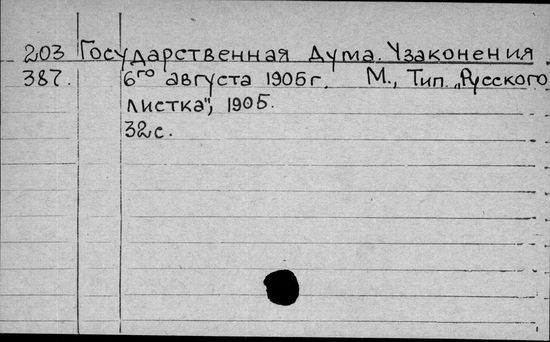 203 Государственная Дума. Узаконения
387. 6го августа 1905 г. М., Тип. „Русского
листка", 1905.
32 с.